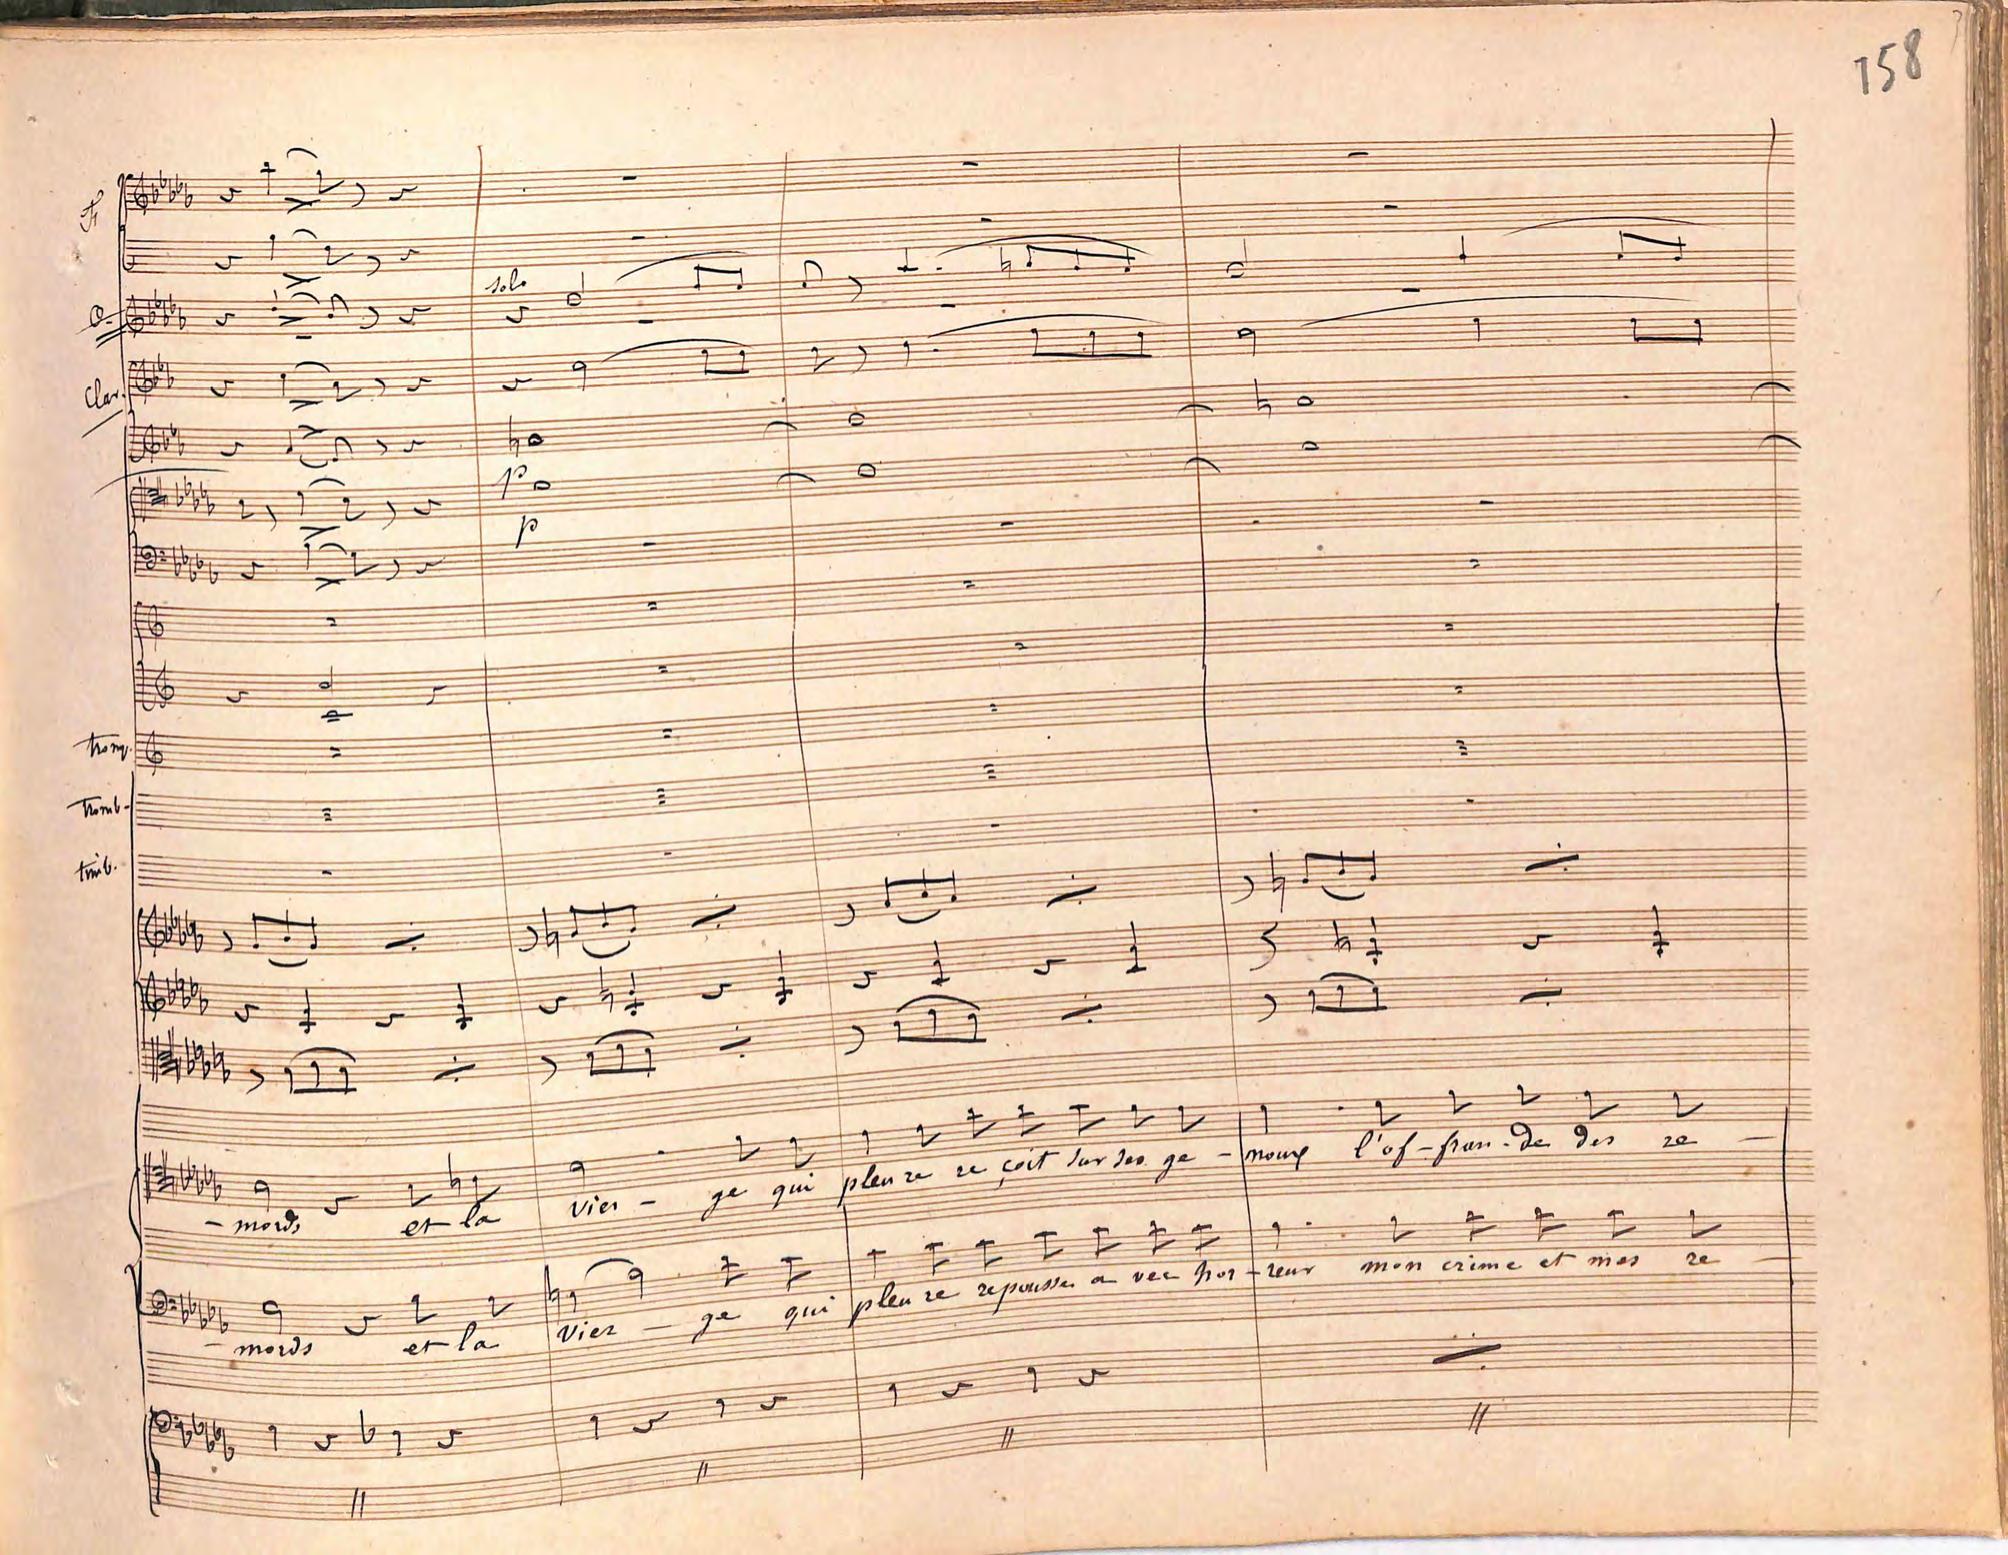 158
solo
Clar.
p
p
Tromp.
Tromb.
timb.
- mords et la vier - ge qui pleure re çoit sur ses ge - noux l'of - fran - de des re -
- mords et la vier - ge qui pleure repousse a vec hor - reur mon crime et mes re -